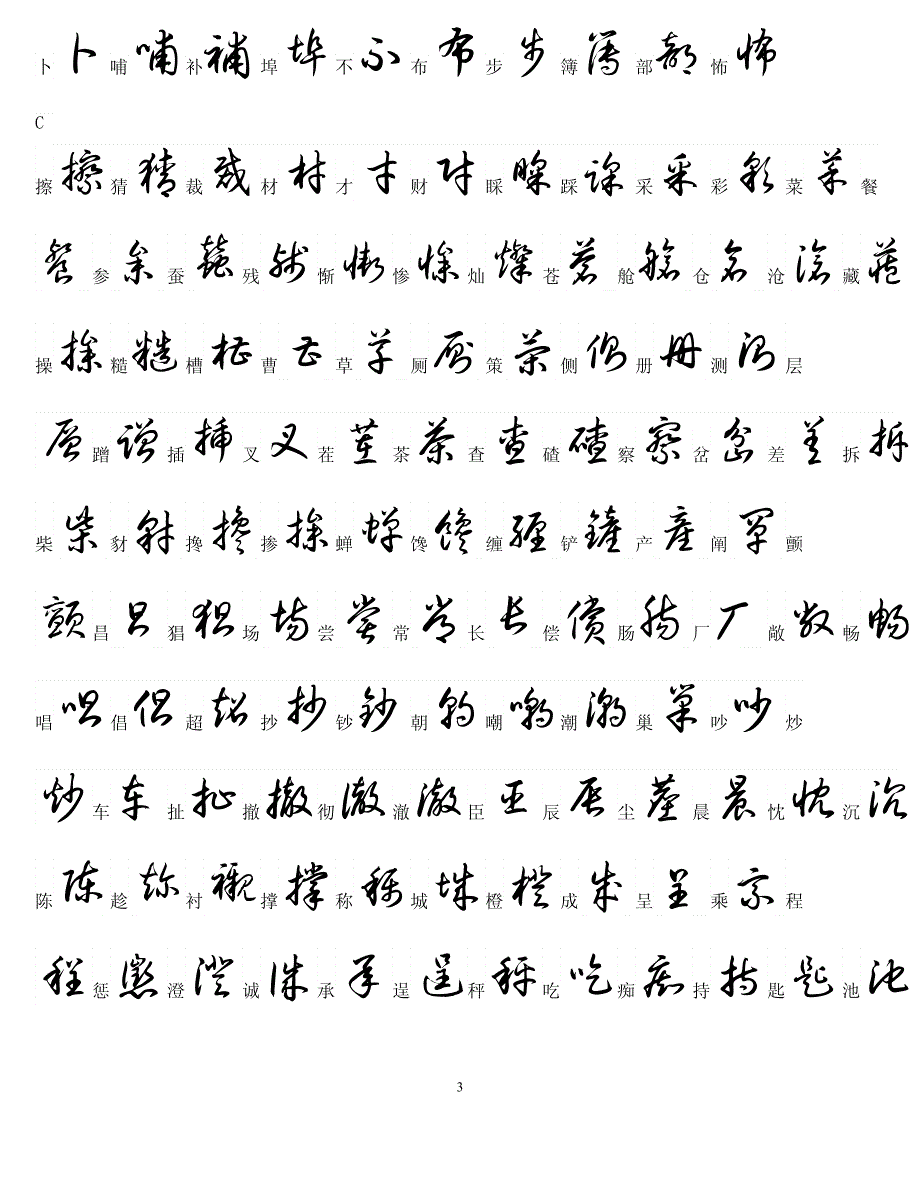 卜卜哺哺补補埠埠不不布布步步簿簿部部怖怖
C
擦擦猜猜裁裁材材才才财财睬睬踩踩采采彩彩菜菜餐
餐参参蚕蚕残残惭惭惨惨灿灿苍苍舱舱仓仓沧沧藏藏
操操糙糙槽槽曹曹草草厕厕策策侧侧册册测测层
层蹭蹭插插叉叉茬茬茶茶查查碴碴察察岔岔差差拆拆
柴柴豺豺搀搀掺掺蝉蝉馋馋缠缠铲铲产产阐阐颤
颤昌昌猖猖场场尝尝常常长长偿偿肠肠厂厂敞敞畅畅
唱唱倡倡超超抄抄钞钞朝朝嘲嘲潮潮巢巢吵吵炒
炒车车扯扯撤撤彻彻澈澈臣臣辰辰尘尘晨晨忱忱沉沉
陈陈趁趁衬衬撑撑称称城城橙橙成成呈呈乘乘程
程惩惩澄澄诚诚承承逞逞秤秤吃吃痴痴持持匙匙池池
3